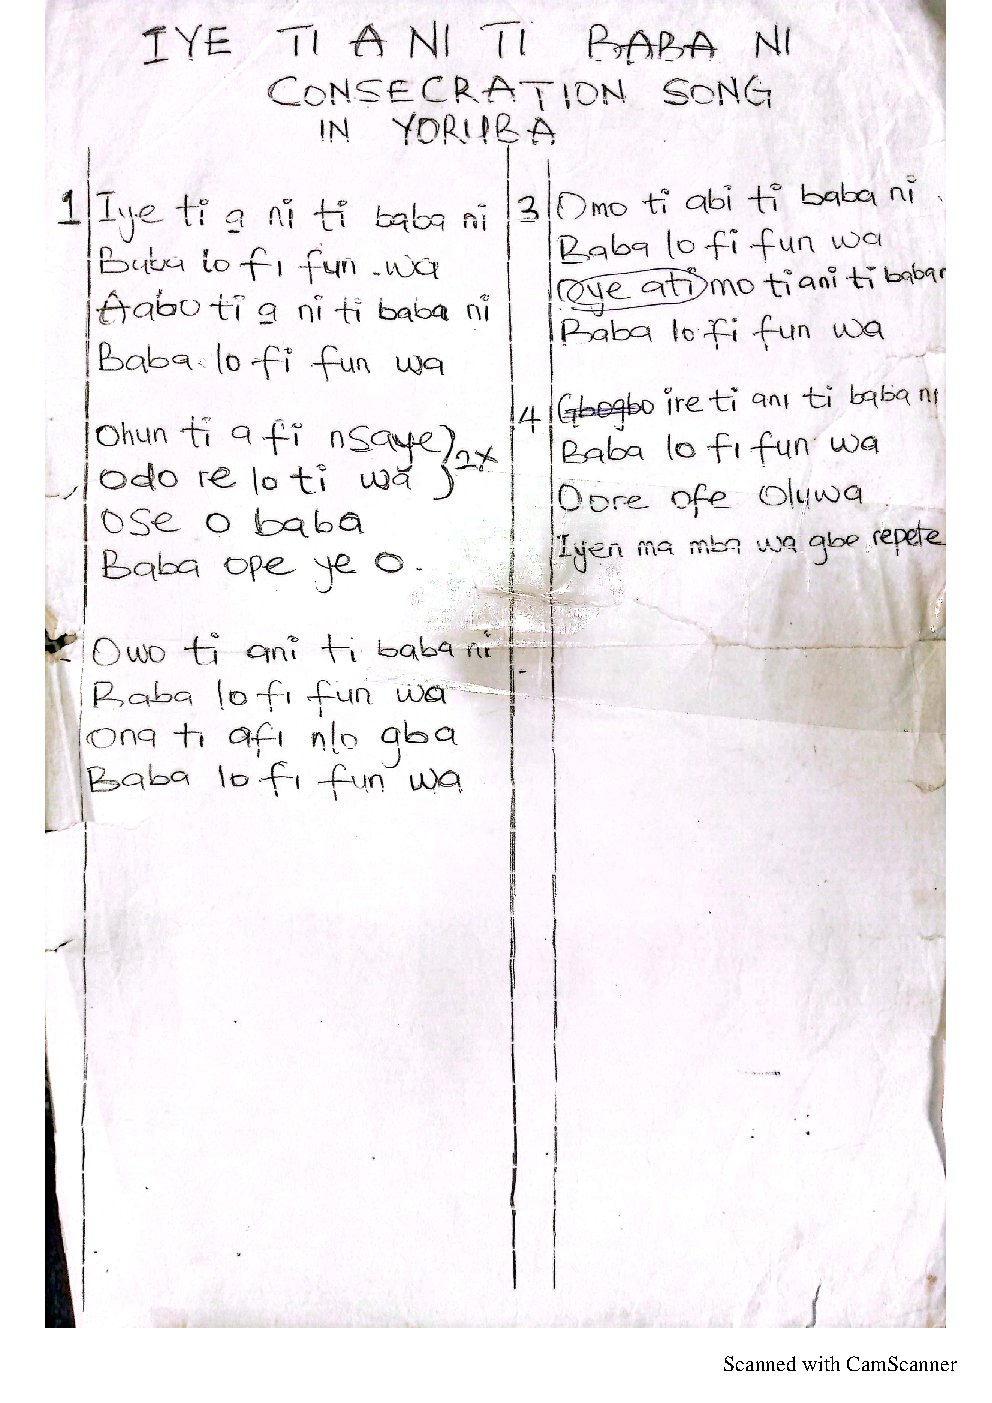 IYE TI A NI TI BABA NI
CONSECRATION SONG
IN YORUBA
1 Iye ti a ni ti baba ni
Baba lo fi fun wa
Aabo ti a ni ti baba ni
Baba lo fi fun wa
Ohun ti a fi nsaye
Odo re lo ti wa 2x
OSE O baba
Baba ope ye O.
Owo ti ani ti baba ni
Baba lo fi fun wa
Ona ti afi nlo gba
Baba lo fi fun wa
3 Omo ti abi ti baba ni
Baba lo fi fun wa
Oye ati mo ti ani ti baba
Baba lo fi fun wa
4 Gbogbo ire ti ani ti baba ni
Baba lo fi fun wa
Oore ofe Oluwa
Iyen ma mba wa gbe repete
Scanned with CamScanner